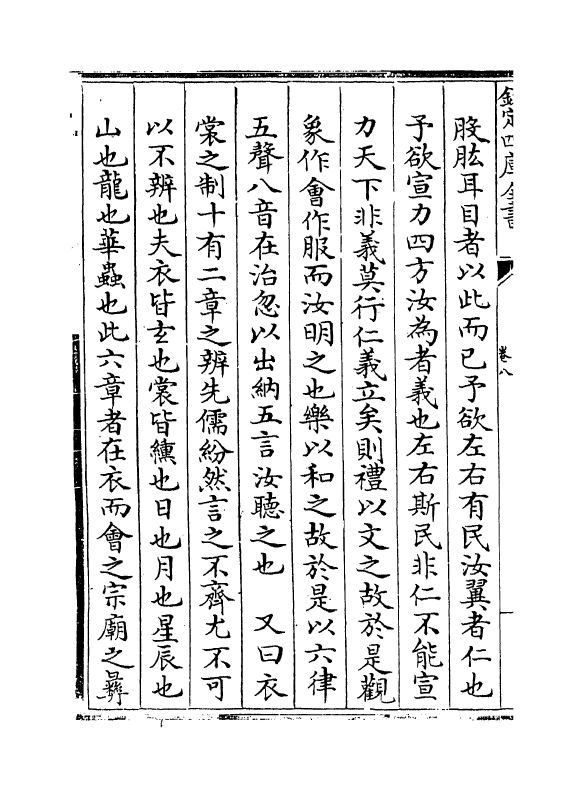 欽定四庫全書
卷八
股肱耳目者以此而已予欲左右有民汝翼者仁也
予欲宣力四方汝為者義也左右斯民非仁不能宣
力天下非義莫行仁義立矣則禮以文之故於是觀
象作會作服而汝明之也樂以和之故於是以六律
五聲八音在治忽以出納五言汝聽之也　又曰衣
裳之制十有二章之辨先儒紛然言之不齊尤不可
以不辨也夫衣皆玄也裳皆纁也日也月也星辰也
山也龍也華蟲也此六章者在衣而會之宗廟之彝